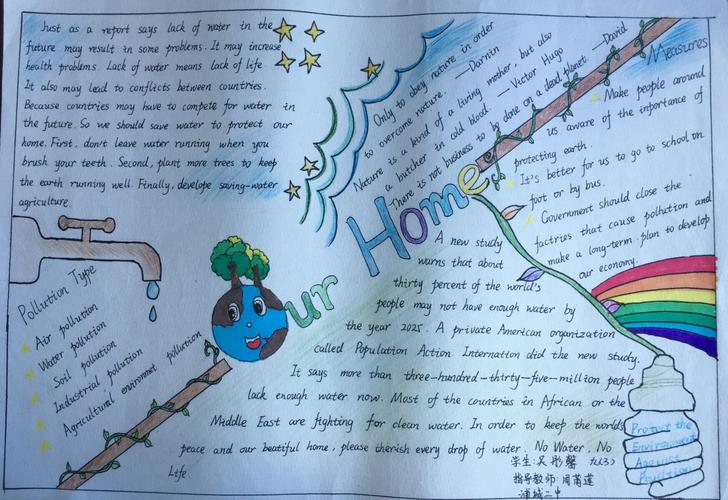 Just as a report says lack of water in the
future may result in some problems. It may increase
health problems. Lack of water means lack of life.
It also may lead to conflicts between countries.
Because countries may have to compete for water in
the future. So we should save water to protect our
home. First, don't leave water running when you
brush your teeth. Second, plant more trees to keep
the earth running well. Finally, develope saving-water
agriculture.
Only to obey nature in order
to overcome nature. —Darnin
Nature is a kind of a living mother, but also
a butcher in cold blood. — Victor Hugo
There is not business to be done on a dead planet —David
Measures
Make people around
us aware of the importance of
protecting earth.
It's better for us to go to school on
foot or by bus.
Government should close the
factries that cause pollution and
make a long-term plan to develop
our economy.
Our Home
Pollution Type
Air pollution
Water pollution
Soil pollution
Industrial pollution
Agricultural environmet pollution
A new study
warns that about
thirty percent of the world's
people may not have enough water by
the year 2025. A private American organization
called Population Action Internation did the new study.
It says more than three-hundred-thirty-five-million people
lack enough water now. Most of the countries in African or the
Middle East are fighting for clean water. In order to keep the world's
peace and our beatiful home, please therish every drop of water. No Water, No
Life.
Protect the
Environment
Against
Pollution
学生: 吴彤馨 九(3)
指导教师: 周莆莲
浦城二中